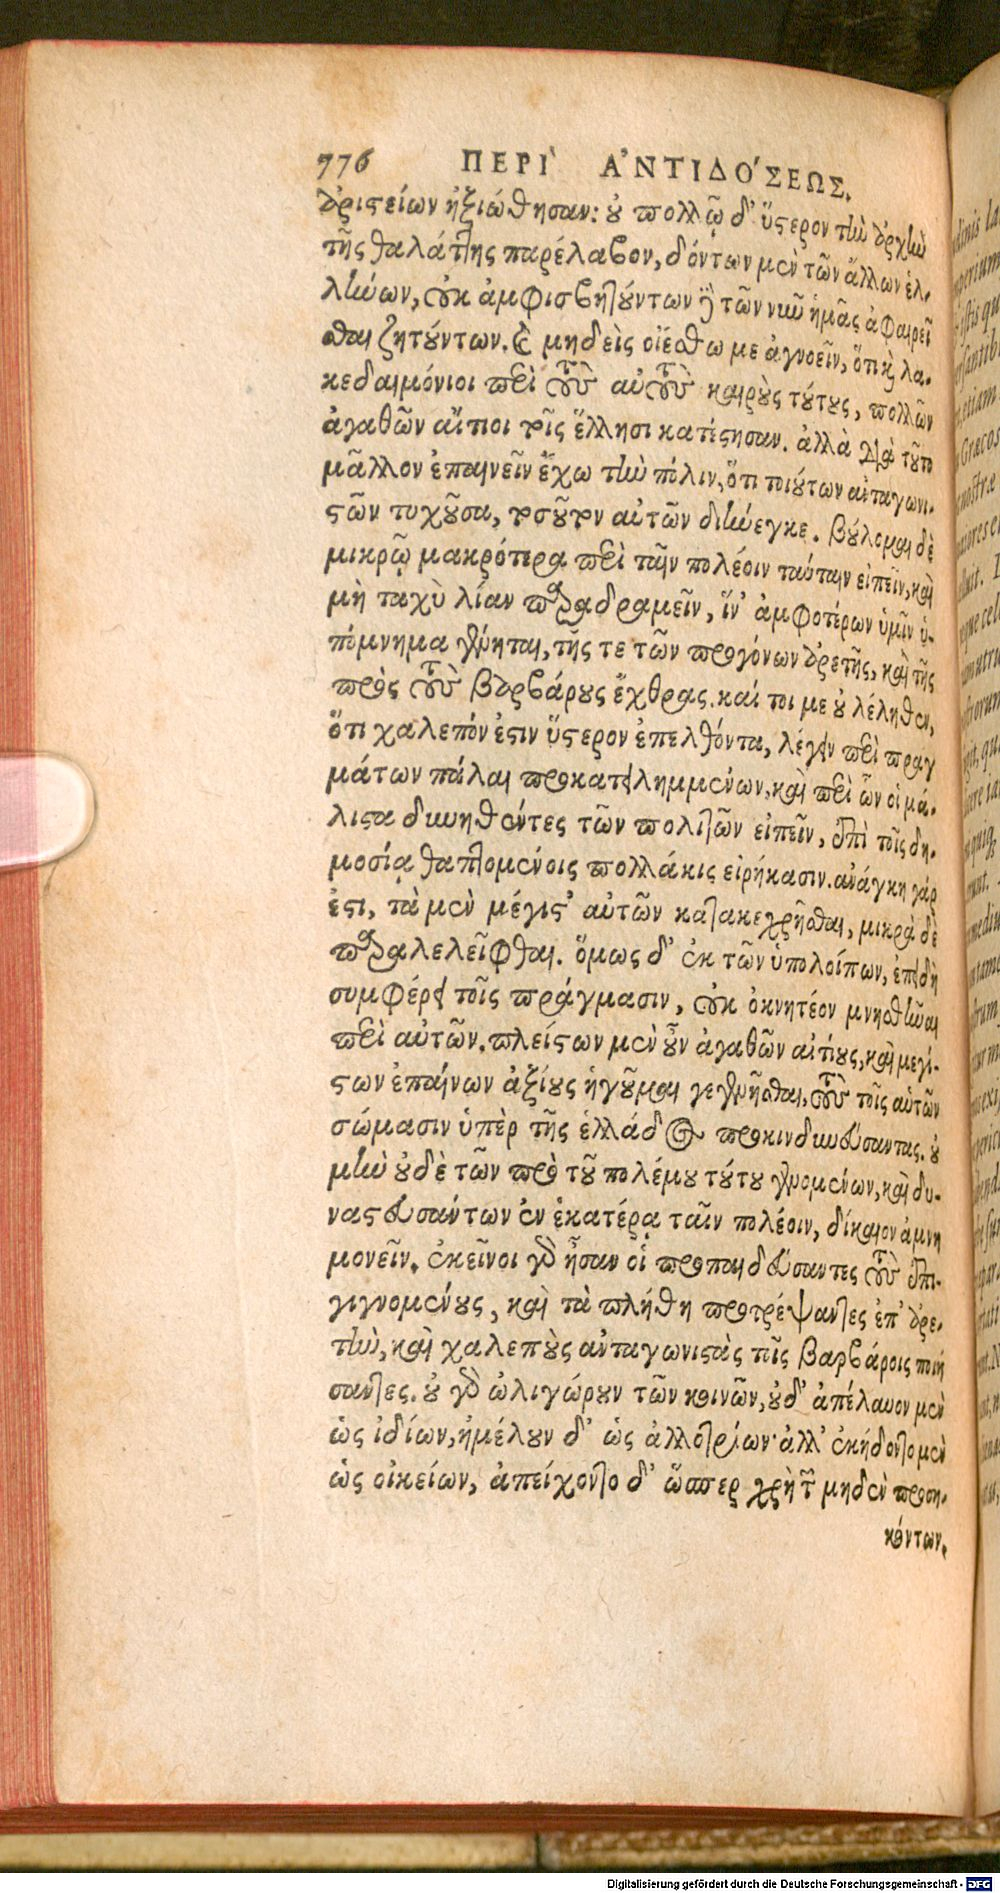 776 ΠΕΡῚ ἈΝΤΙΔΌΣΕΩΣ.
ἀριστείων ἠξιώθησαν: οὐ πολλῷ δ' ὕστερον τὴν ἀρχὴν
τῆς θαλάττης παρέλαβον, δόντων μὲν τῶν ἄλλων ἑλ-
λήνων, οὐκ ἀμφισβητούντων δὲ τῶν νῦν ἡμᾶς ἀφαιρεῖ
σθαι ζητούντων. καὶ μηδεὶς οἰέσθω με ἀγνοεῖν, ὅτι καὶ λα-
κεδαιμόνιοι περὶ τοὺς αὐτοὺς καιροὺς τούτους, πολλῶν
ἀγαθῶν αἴτιοι τοῖς ἕλλησι κατέστησαν. ἀλλὰ διὰ τοῦτο
μᾶλλον ἐπαινεῖν ἔχω τὴν πόλιν, ὅτι τοιούτων ἀνταγωνι-
στῶν τυχοῦσα, τοσοῦτον αὐτῶν διήνεγκε. βούλομαι δὲ
μικρῷ μακρότερα περὶ ταῖν πολέοιν ταύταιν εἰπεῖν, καὶ
μὴ ταχὺ λίαν παραδραμεῖν, ἵν' ἀμφοτέρων ὑμῖν ὑ-
πόμνημα γένηται, τῆς τε τῶν προγόνων ἀρετῆς, καὶ τῆς
πρὸς τοὺς βαρβάρους ἔχθρας. καί τοι με οὐ λέληθεν,
ὅτι χαλεπόν ἐστιν ὕστερον ἐπελθόντα, λέγειν περὶ πραγ
μάτων πάλαι προκατειλημμένων, καὶ περὶ ὧν οἱ μά-
λιστα δυνηθέντες τῶν πολιτῶν εἰπεῖν, ἐπὶ τοῖς δη-
μοσίᾳ θαπτομένοις πολλάκις εἰρήκασιν. ἀνάγκη γάρ
ἐστι, τὰ μὲν μέγιστ' αὐτῶν κατακεχρῆσθαι, μικρὰ δὲ
παραλελεῖφθαι. ὅμως δ' ἐκ τῶν ὑπολοίπων, ἐπειδὴ
συμφέρει τοῖς πράγμασιν, οὐκ ὀκνητέον μνησθῆναι
περὶ αὐτῶν. πλείστων μὲν οὖν ἀγαθῶν αἰτίους, καὶ μεγί-
στων ἐπαίνων ἀξίους ἡγοῦμαι γεγενῆσθαι, τοὺς τοῖς αὑτῶν
σώμασιν ὑπὲρ τῆς ἑλλάδος προκινδυνεύσαντας. οὐ
μὴν οὐδὲ τῶν πρὸ τοῦ πολέμου τούτου γενομένων, καὶ δυ-
ναστευσάντων ἐν ἑκατέρᾳ ταῖν πολέοιν, δίκαιον ἀμνη
μονεῖν. ἐκεῖνοι γὰρ ἦσαν οἱ προπαιδεύσαντες τοὺς ἐπι-
γιγνομένους, καὶ τὰ πλήθη προτρέψαντες ἐπ' ἀρε-
τὴν, καὶ χαλεποὺς ἀνταγωνιστὰς τοῖς βαρβάροις ποιή
σαντες. οὐ γὰρ ὠλιγώρουν τῶν κοινῶν, οὐδ' ἀπέλαυον μὲν
ὡς ἰδίων, ἠμέλουν δ' ὡς ἀλλοτρίων· ἀλλ' ἐκήδοντο μὲν
ὡς οἰκείων, ἀπείχοντο δ' ὥσπερ χρὴ τῶν μηδὲν προση-
κόντων.
Digitalisierung gefördert durch die Deutsche Forschungsgemeinschaft - DFG